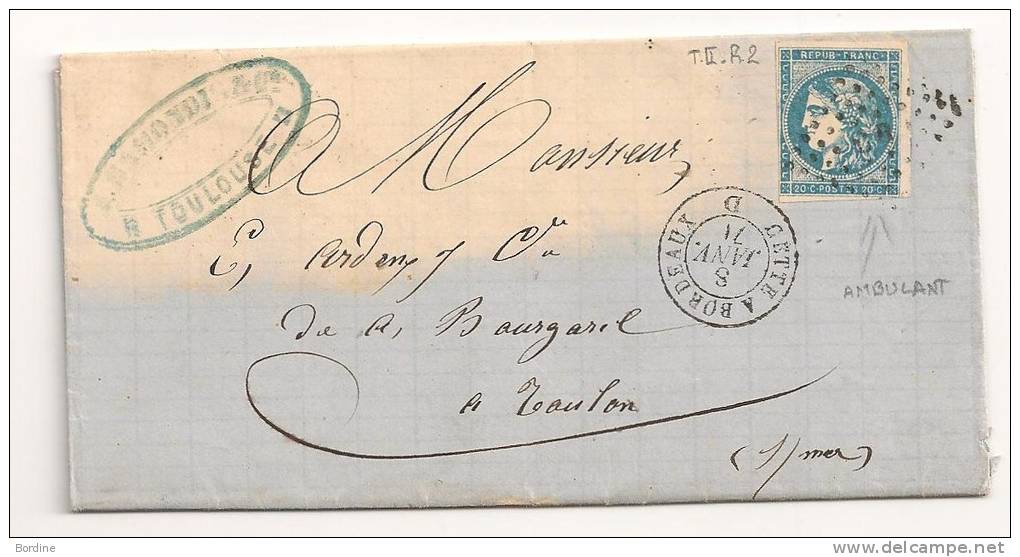 T.II.R2
REPUB·FRANC
20 C·POSTES 20 C
& Cie
A TOULOUSE
A Monsieur
E, Arden y Cie
de A, Bourgarel
a Toulon
(s/mer)
CETTE A BORDEAUX
D
8
JANV.
71
AMBULANT
Bordine
delcampe.net